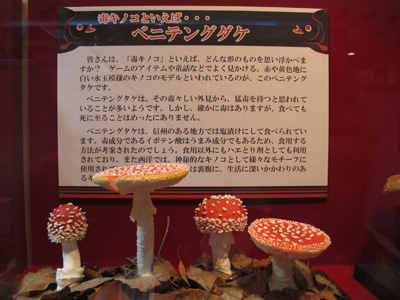 毒キノコといえば・・・
ベニテングダケ
皆さんは、「毒キノコ」といえば、どんな形のものを思い浮かべま
すか？ ゲームのアイテムや童話などでよく見かける、赤や黄色地に
白い水玉模様のキノコのモデルといわれているのが、このベニテング
タケです。
ベニテングタケは、その毒々しい外見から、猛毒を持つと思われて
いることが多いようです。しかし、確かに毒はありますが、食べても
死に至ることはめったにありません。
ベニテングタケは、信州のある地方では塩漬けにして食べられてい
ます。毒成分であるイボテン酸はうまみ成分でもあるため、食用する
方法が考案されたのでしょう。食用以外にもハエとり剤としても利用
されており、また西洋では、神秘的なキノコとして様々なモチーフに
使用され は裏腹に、生活に深いかかわりのあ
るキ